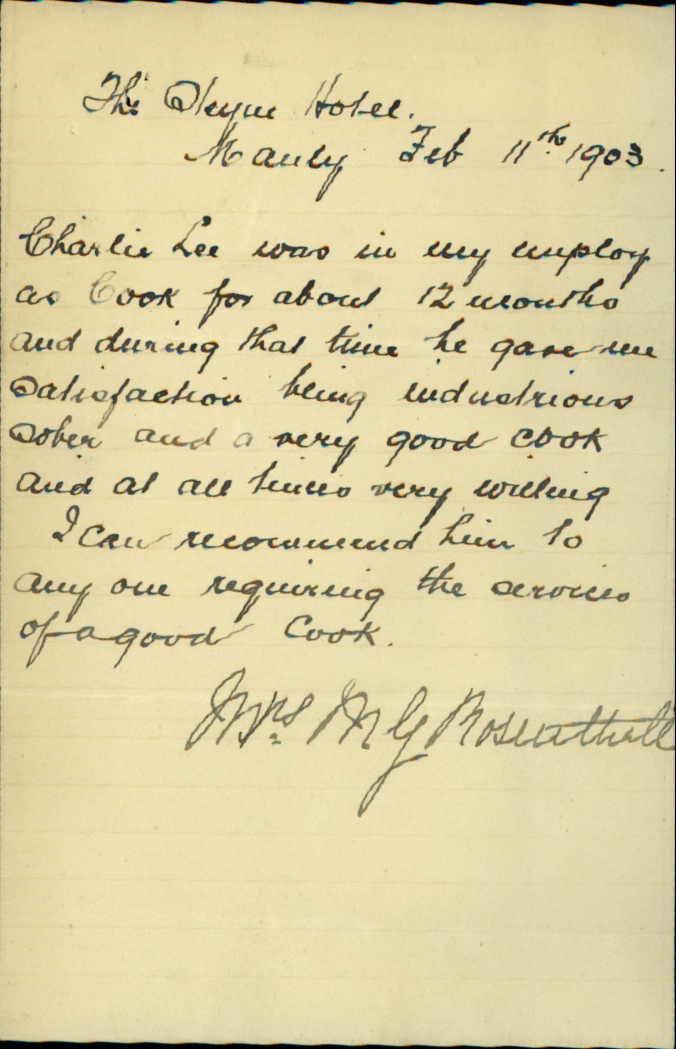 The Steyne Hotel.
Manly Feb 11th 1903.
Charlie Lee was in my employ
as Cook for about 12 months
and during that time he gave me
satisfaction being industrious
sober and a very good cook
and at all times very willing
I can recommend him to
any one requiring the services
of a good Cook.
Mrs M G Rosenthall